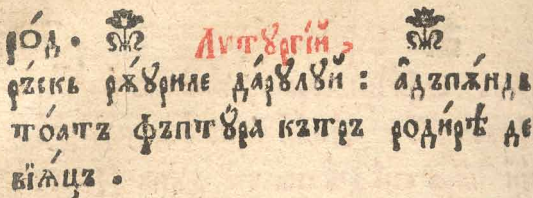 ро́д. Лѷтꙋргі́й,
ръ́скь рѫ́ꙋриле да́рꙋлꙋй : а҆дъпѫ́ндь
то́атъ фъптꙋ́ра кътръ роди́рѣ де
вїѧ́цъ .